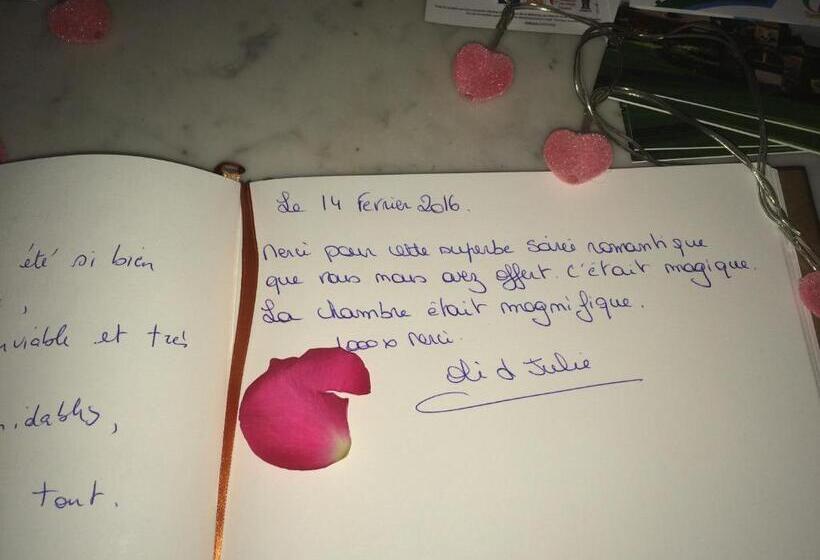 été si bien
,
viable et très
idables,
tout.
Le 14 Fevrier 2016.
Merci pour cette superbe soirée romantique
que vous nous avez offert. C'était magique.
La chambre était magnifique.
1000 x merci.
Oli & Julie